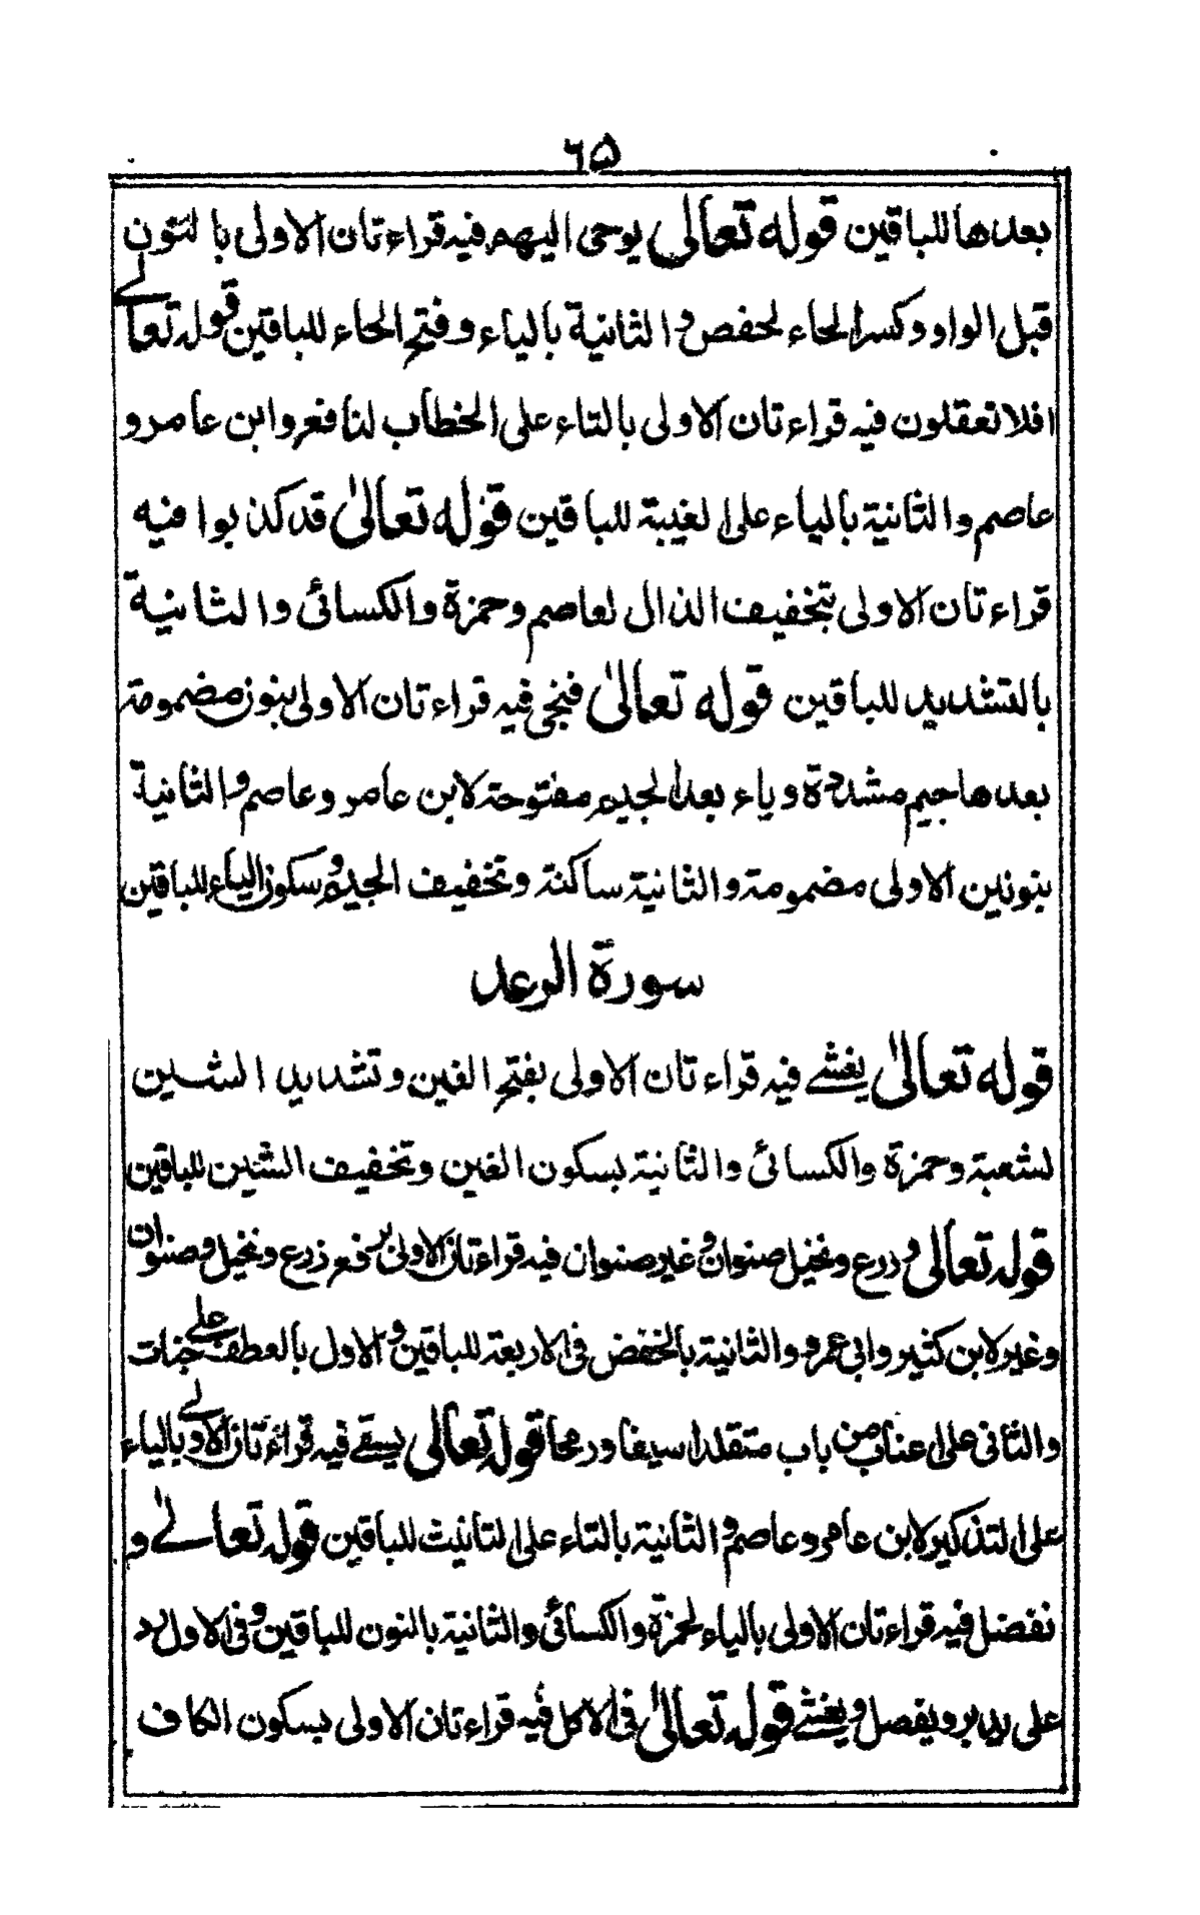 ٦٥
بعدها للباقين قوله تعالى يوحى اليهم فيه قراءتان الاولى بالنون
قبل الواو وكسر الحاء لحفص والثانية بالياء وفتح الحاء للباقين قوله تعالے
افلا تعقلون فيه قراءتان الاولى بالتاء على الخطاب لنافع وابن عامر و
عاصم والثانية بالياء على الغيبة للباقين قوله تعالىٰ قد كذبوا فيه
قراءتان الاولى بتخفيف الذال لعاصم وحمزة والكسائى والثانية
بالتشديد للباقين قوله تعالىٰ فنجى فيه قراءتان الاولى بنون مضمومة
بعدها جيم مشددة وياء بعد الجيم مفتوحة لابن عامر وعاصم والثانية
بنونين الاولى مضمومة والثانية ساكنة وتخفيف الجيم وسكون الياء للباقين
سورة الرعد
قوله تعالىٰ يغشے فيه قراءتان الاولى بفتح الغين وتشديد الشين
لشعبة وحمزة والكسائى والثانية بسكون الغين وتخفيف الشين للباقين
قوله تعالى وزرع ونخيل صنوان وغير صنوان فيه قراءتان الاولى برفع زرع ونخيل وصنوان
وغير لابن كثير وابى عمرو والثانية بالخفض فى الاربعة للباقين والاول بالعطف علے جنات
والثانى على اعناب من باب متقلدا سيفا ورمحا قوله تعالى يسقے فيه قراءتان الاولے بالياء
على التذكير لابن عامر وعاصم والثانية بالتاء على التانيث للباقين قوله تعالےٰ و
نفضل فيه قراءتان الاولى بالياء لحمزة والكسائى والثانية بالنون للباقين وفى الاول رد
على يدبر ويفصل ويغشے قوله تعالىٰ فى الاكل فيه قراءتان الاولى بسكون الكاف